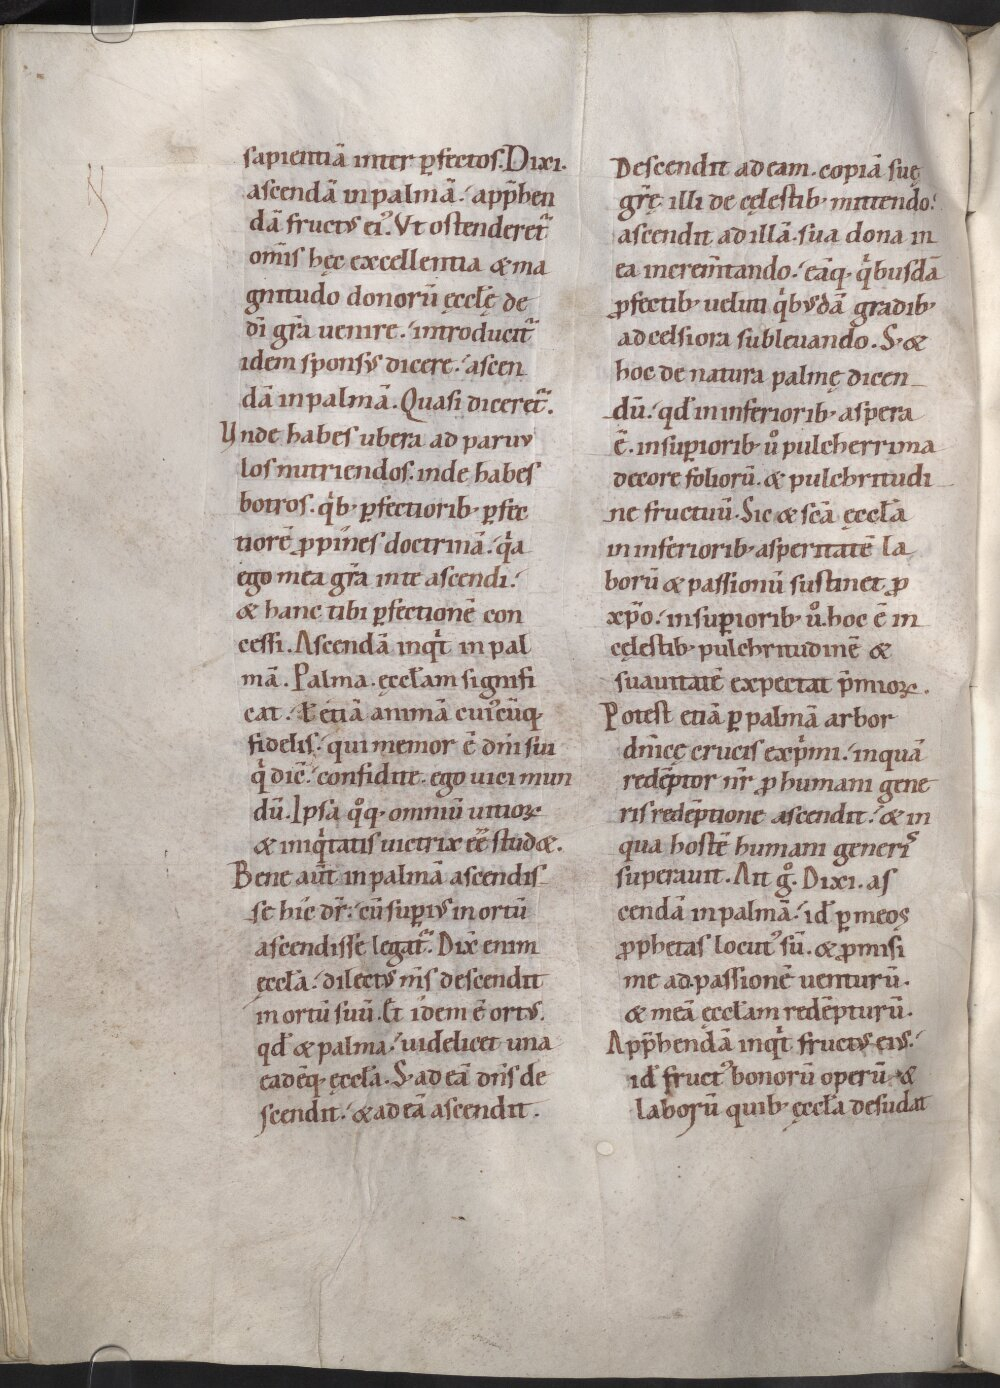 sapientiā inter ꝑfectos. Dixi.
ascendā in palmā. app̄hen
dā fructꝰ ei᷒. Vt ostenderet᷑
om̄is hęc excellentia & ma
gnitudo donorū ęccłę de
dī gr̄a uenire. introducit᷑
idem sponsꝰ dicere. ascen
dā in palmā. Quasi diceret᷑.
Vnde habes ubera ad paruu
los nutriendos. inde habes
botros. qͥb; ꝑfectiorib; ꝑfec
tiorē ꝓpines doctrinā. qͥa
ego mea gr̄a in te ascendi.
& hanc tibi ꝑfectionē con
cessi. Ascendā inqͥt in pal
mā. Palma. ęccłam signifi
cat. ł etiā animā cui᷒cūq;
fidelis. qui memor ē dn̄i sui
qͥ dic̄. confidite. ego uici mun
dū. Ipsa qͦq; omniū uitioꝝ
& iniqͥtatis uictrix eē̄ stud&.
Bene aūt in palmā ascendis
se hic dr̄. cū supiꝰ in ortū
ascendisse legat᷑. Dix̄ enim
ęccła. dilectꝰ m̄s descendit
in ortū suū. Et idem ē ortꝰ.
qđ & palma. uidelicet una
eadēq; ęccła. S; ad eā dn̄s de
scendit. & ad eā ascendit.
Descendit ad eam. copiā suę
gr̄ę illi de cęlestib; mittendo.
ascendit ad illā. sua dona in
ea increm̄tando. eāq; qͥbusdā
ꝓfectib; ueluti qͥbꝰdā gradib;
ad celsiora subleuando. S; &
hoc de natura palmę dicen
dū. qđ in inferiorib; aspera
ē. in supiorib; uͦ pulcherrima
decore foliorū. & pulchritudi
ne fructuū. Sic & sc̄a ęccła
in inferiorib; asperitatē la
borū & passionū sustinet ꝓ
xp̄o. in supiorib; uͦ. hoc ē in
cęlestib; pulchritudinē &
suauitatē expectat p̄mioꝝ.
Potest etiā ꝑ palmā arbor
dn̄icę crucis exp̄mi. in qua
redēptor nr̄ ꝓ humani gene
ris redēptione ascendit. & in
qua hostē humani generis
superauit. Ait gͦ. Dixi. as
cendā in palmā. id̄ ꝑ meos
ꝓphetas locut᷒ sū. & ꝓmisi
me ad passionē uenturū.
& meā ęccłam redēpturū.
App̄hendā inqͥt fructꝰ eiꝰ.
id̄ fruct᷒ bonorū operū &
laborū quib; ęccła desudat